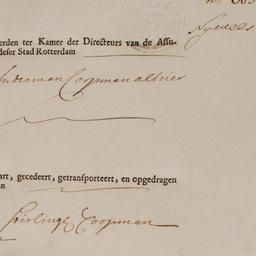 erden ter Kamer der Directeurs van de Assu-
deser Stad Rotterdam
Coopman alhier
art, gecedeert, getransporteert, en opgedragen
an
Coopman